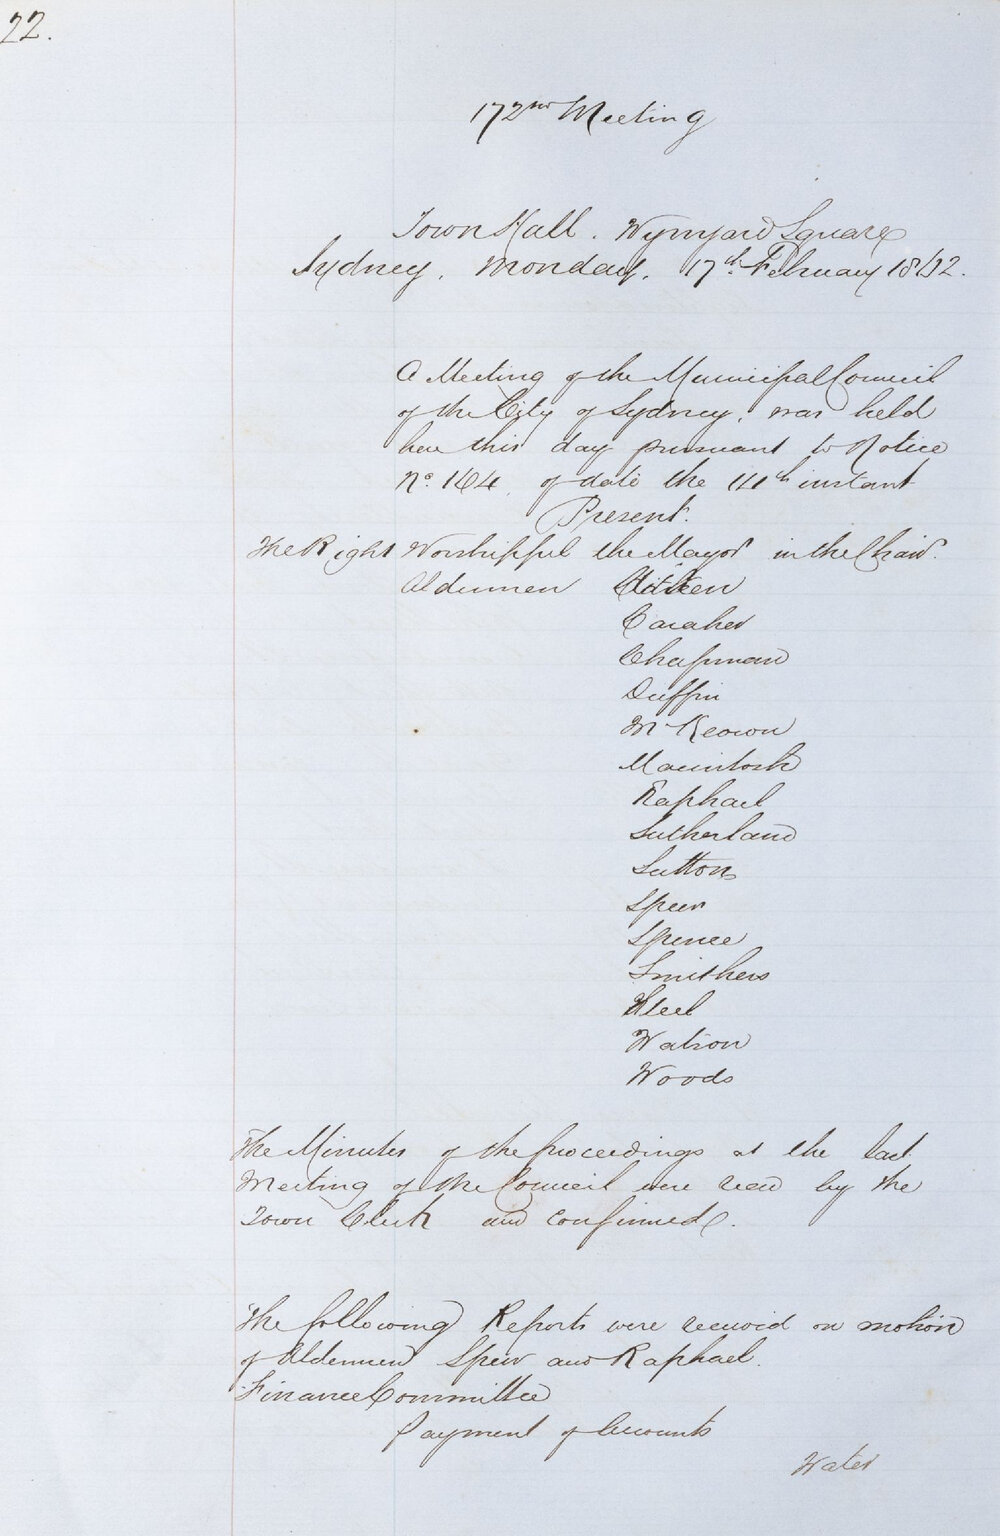 22.
172nd Meeting
Town Hall. Wynyard Square
Sydney. Monday. 17th February 1862.
A Meeting of the Municipal Council
of the City of Sydney, was held
here this day pursuant to Notice
No. 164 of date the 14th instant
Present.
The Right Worshipful the Mayor in the Chair.
Aldermen
Caraher
Chapman
Duffin
McKeown
Macintosh
Raphael
Sutherland
Sutton
Speer
Spence
Smithers
Steel
Watson
Woods
The Minutes of the proceedings at the last
Meeting of the Council were read by the
Town Clerk and confirmed.
The following Reports were received on motion
of Aldermen Speer and Raphael.
Finance Committee
Payment of Accounts
Water